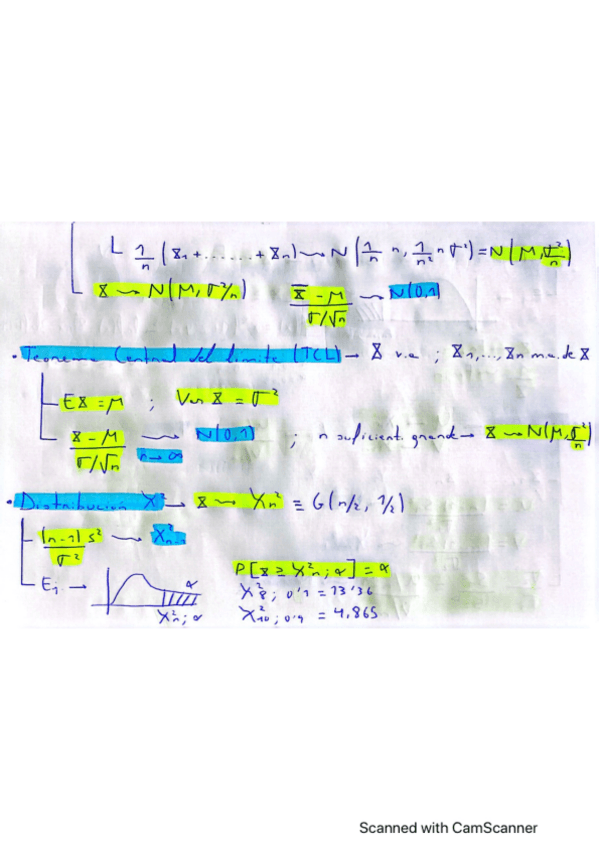 └ 1/n (X1 + ....... + Xn) ⤳ N(1/n n, 1/n² n σ²) = N(M, σ²/n)
X ⤳ N(M, σ²/n) X̄ - M / σ/√n ⤳ N(0,1)
• Teorema Central del límite (TCL) → X v.a ; X1, ..., Xn m.a. de X
EX = M ; Var X = σ²
X - M / σ/√n ⤳ n→∞ N(0,1) ; n suficient. grande → X ⤳ N(M, σ²/n)
• Distribución X² → X ⤳ Xn² ≡ G(n/2, 1/2)
(n-1) s² / σ² ⤳ X²n-1
E1 → α X²n ; α
P[X ≥ X²n ; α] = α
X²8 ; 0'1 = 13'36
X²10 ; 0'9 = 4,865
Scanned with CamScanner